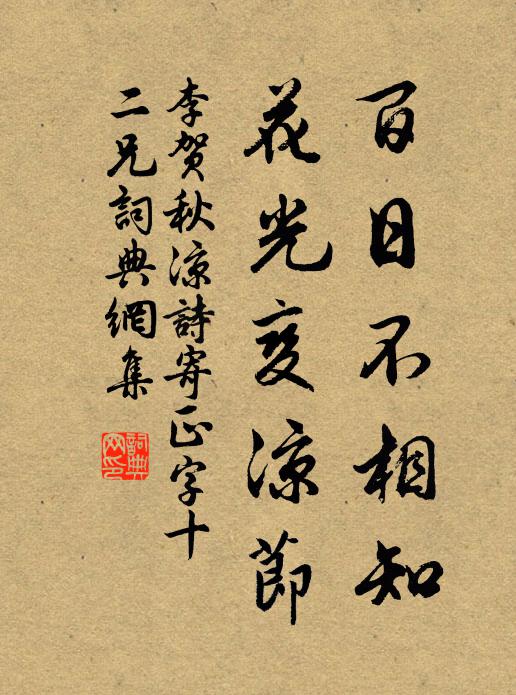 百日不相知
花光变凉節
李贺秋凉詩寄正字十
二兄詞典網集
詞典
网印